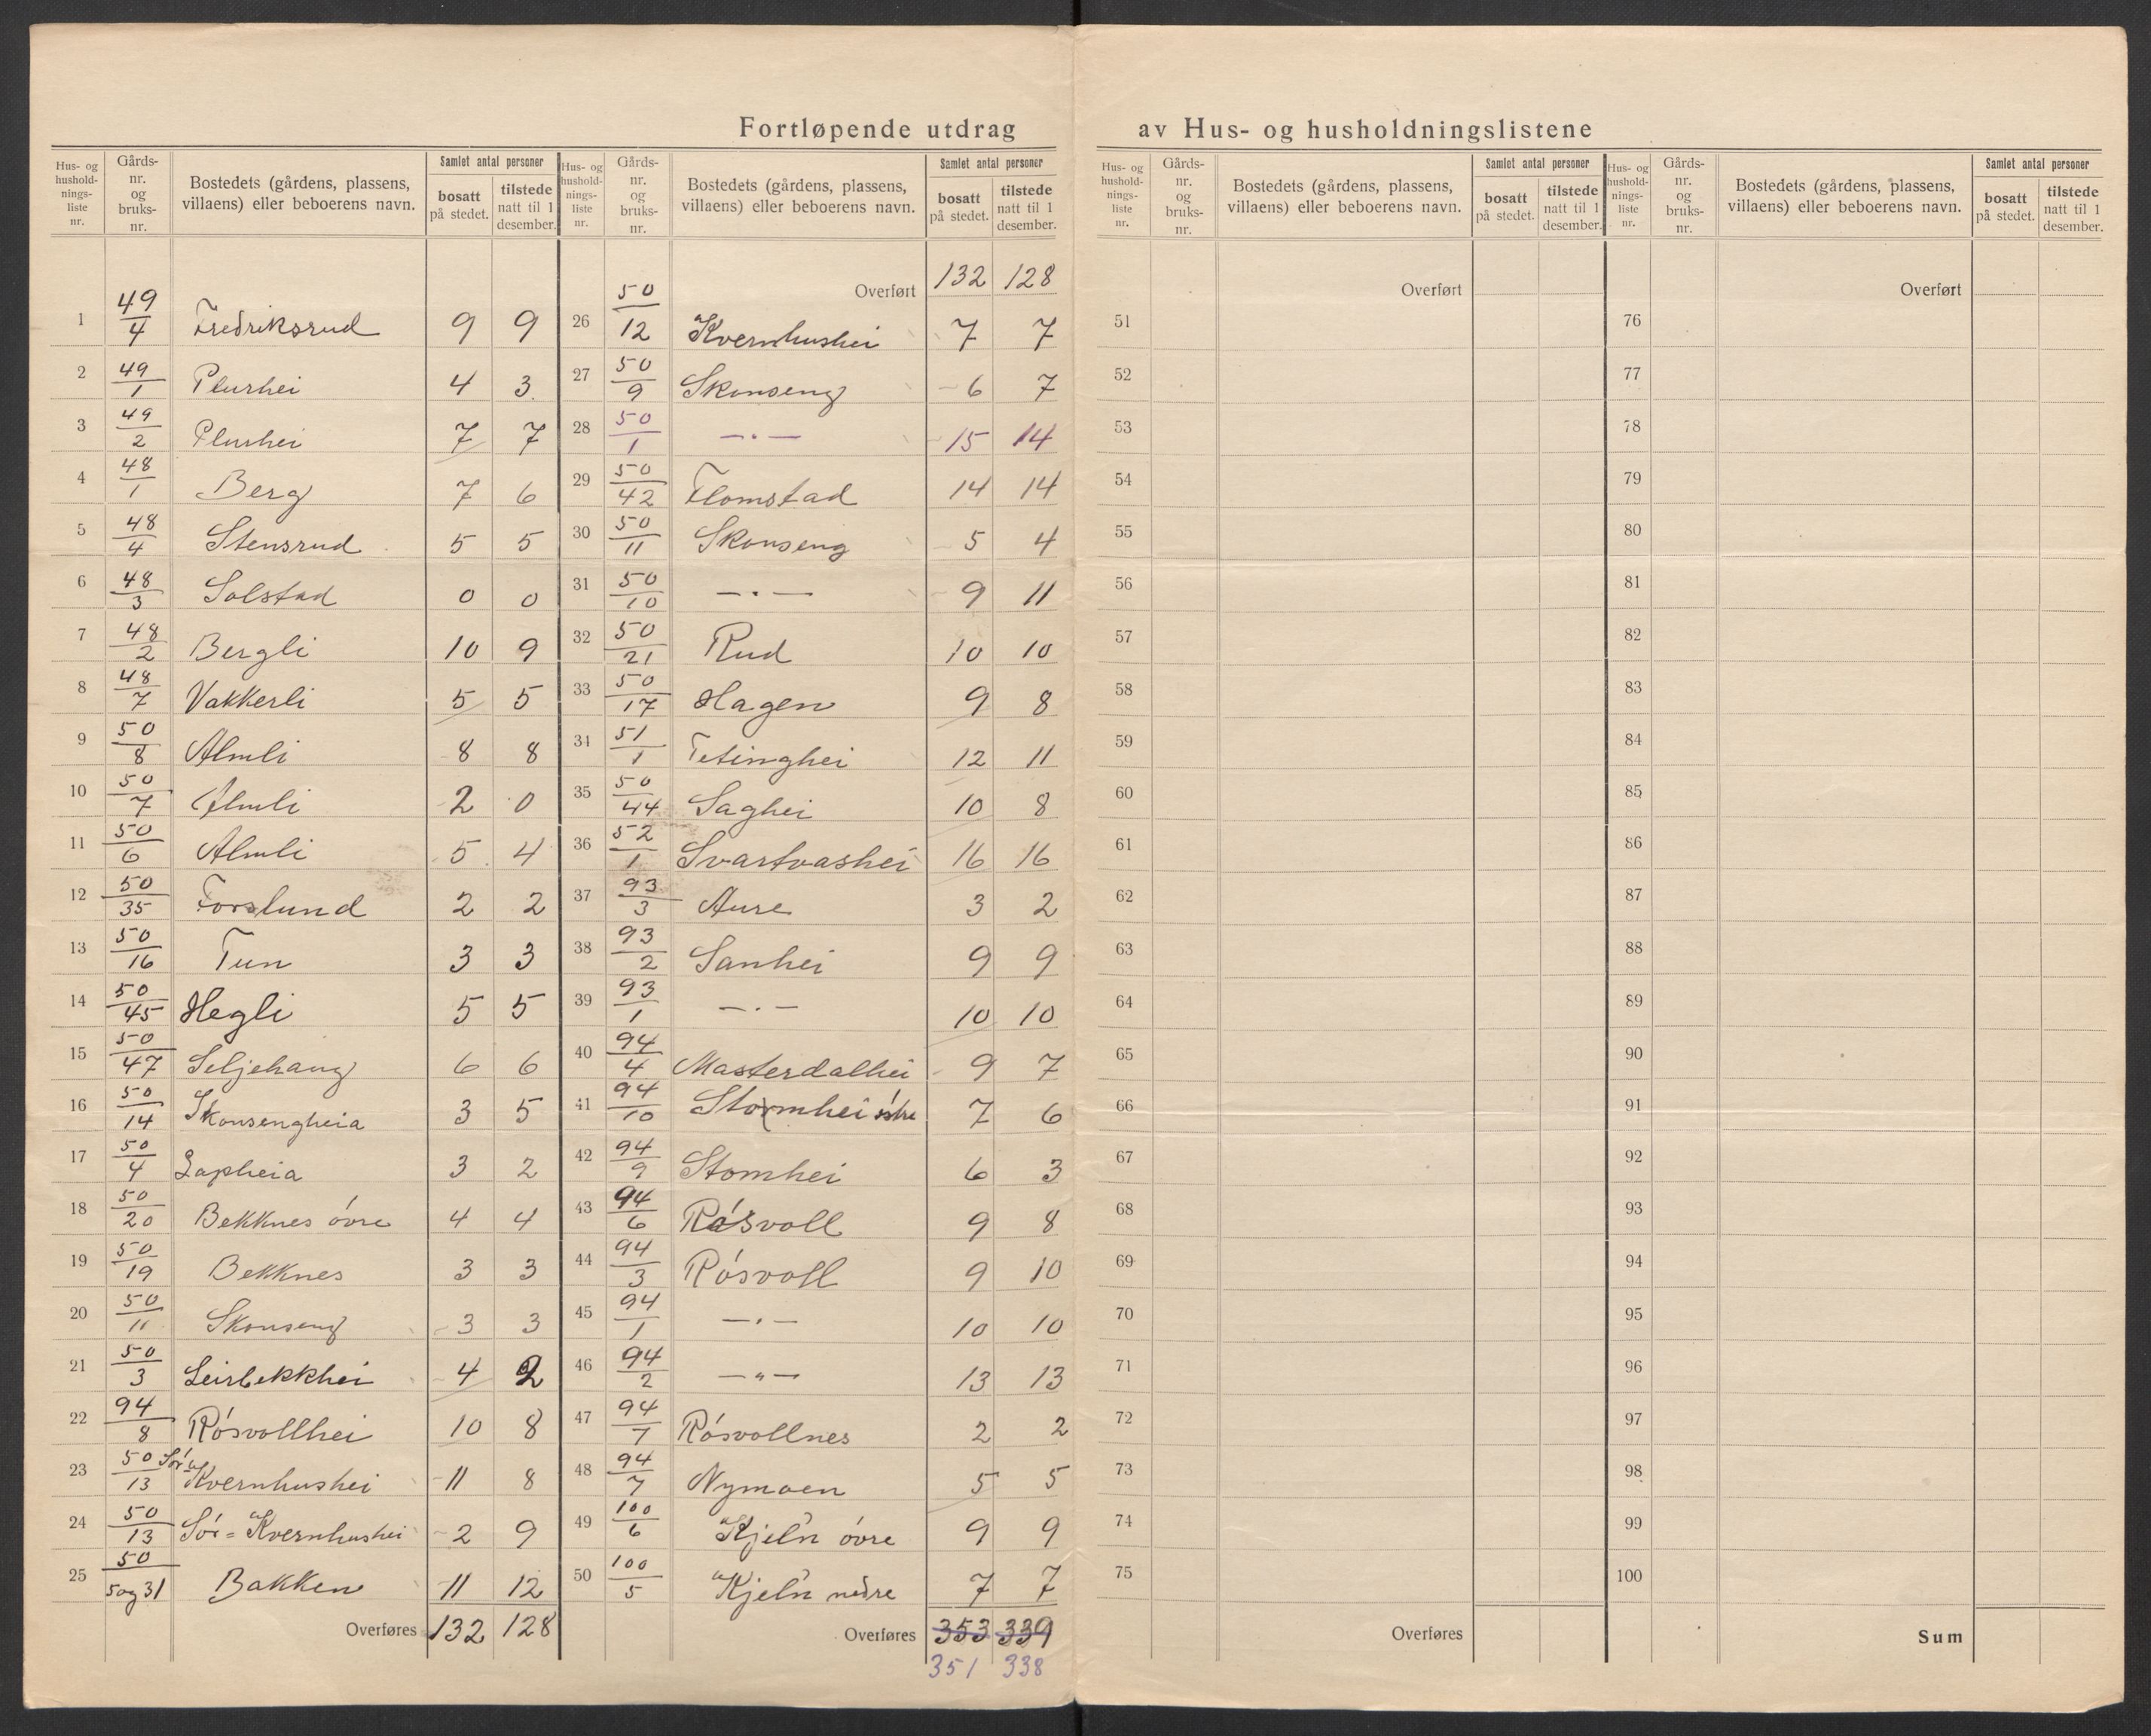 Fortløpende utdrag av Hus- og husholdningslistene
Hus- og hushold-nings-liste nr. Gårds-nr. og bruks-nr. Bostedets (gårdens, plassens, villaens) eller beboerens navn. Samlet antal personer bosatt på stedet. tilstede natt til 1 desember.
1 49/4 Fredriksrud 9 9
2 49/1 Plurhei 4 3
3 49/2 Plurhei 7 7
4 48/1 Berg 7 6
5 48/4 Stensrud 5 5
6 48/3 Solstad 0 0
7 48/2 Bergli 10 9
8 48/7 Vakkerli 5 5
9 50/8 Almli 8 8
10 50/7 Almli 2 0
11 50/6 Almli 5 4
12 50/35 Forslund 2 2
13 50/16 Tun 3 3
14 50/45 Hegli 5 5
15 50/47 Seljehaug 6 6
16 50/14 Skonsengheia 3 5
17 50/4 Lapheia 3 2
18 50/20 Bekknes óvre 4 4
19 50/19 Bekknes 3 3
20 50/11 Skonseng 3 3
21 50/3 Leirbekkhei 4 2
22 94/8 Rósvollhei 10 8
23 50/13 Sór Kvernhushei 11 8
24 50/13 Sór= Kvernhushei 2 9
25 50/5 og 31 Bakken 11 12
Overføres 132 128
Hus- og hushold-nings-liste nr. Gårds-nr. og bruks-nr. Bostedets (gårdens, plassens, villaens) eller beboerens navn. Samlet antal personer bosatt på stedet. tilstede natt til 1 desember.
Overført 132 128
26 50/12 Kvernhushei 7 7
27 50/9 Skonseng 6 7
28 50/1 —·— 15 14
29 50/42 Flomstad 14 14
30 50/11 Skonseng 5 4
31 50/10 —·— 9 11
32 50/21 Rud 10 10
33 50/17 Hagen 9 8
34 51/1 Tetinghei 12 11
35 50/44 Saghei 10 8
36 52/1 Svartvashei 16 16
37 93/3 Aure 3 2
38 93/2 Sanhei 9 9
39 93/1 —·— 10 10
40 94/4 Masterdalhei 9 7
41 94/10 Stormhei 7 6
42 94/9 Stomhei 6 3
43 94/6 Rósvoll 9 8
44 94/3 Rósvoll 9 10
45 94/1 —·— 10 10
46 94/2 —"— 13 13
47 94/7 Rósvollnes 2 2
48 94/7 Nymoen 5 5
49 100/6 Kjel'n óvre 9 9
50 100/5 Kjel'n nedre 7 7
Overføres 353 339
351 338
Hus- og hushold-nings-liste nr. Gårds-nr. og bruks-nr. Bostedets (gårdens, plassens, villaens) eller beboerens navn. Samlet antal personer bosatt på stedet. tilstede natt til 1 desember.
Overført
51
52
53
54
55
56
57
58
59
60
61
62
63
64
65
66
67
68
69
70
71
72
73
74
75
Overføres
Hus- og hushold-nings-liste nr. Gårds-nr. og bruks-nr. Bostedets (gårdens, plassens, villaens) eller beboerens navn. Samlet antal personer bosatt på stedet. tilstede natt til 1 desember.
Overført
76
77
78
79
80
81
82
83
84
85
86
87
88
89
90
91
92
93
94
95
96
97
98
99
100
Sum